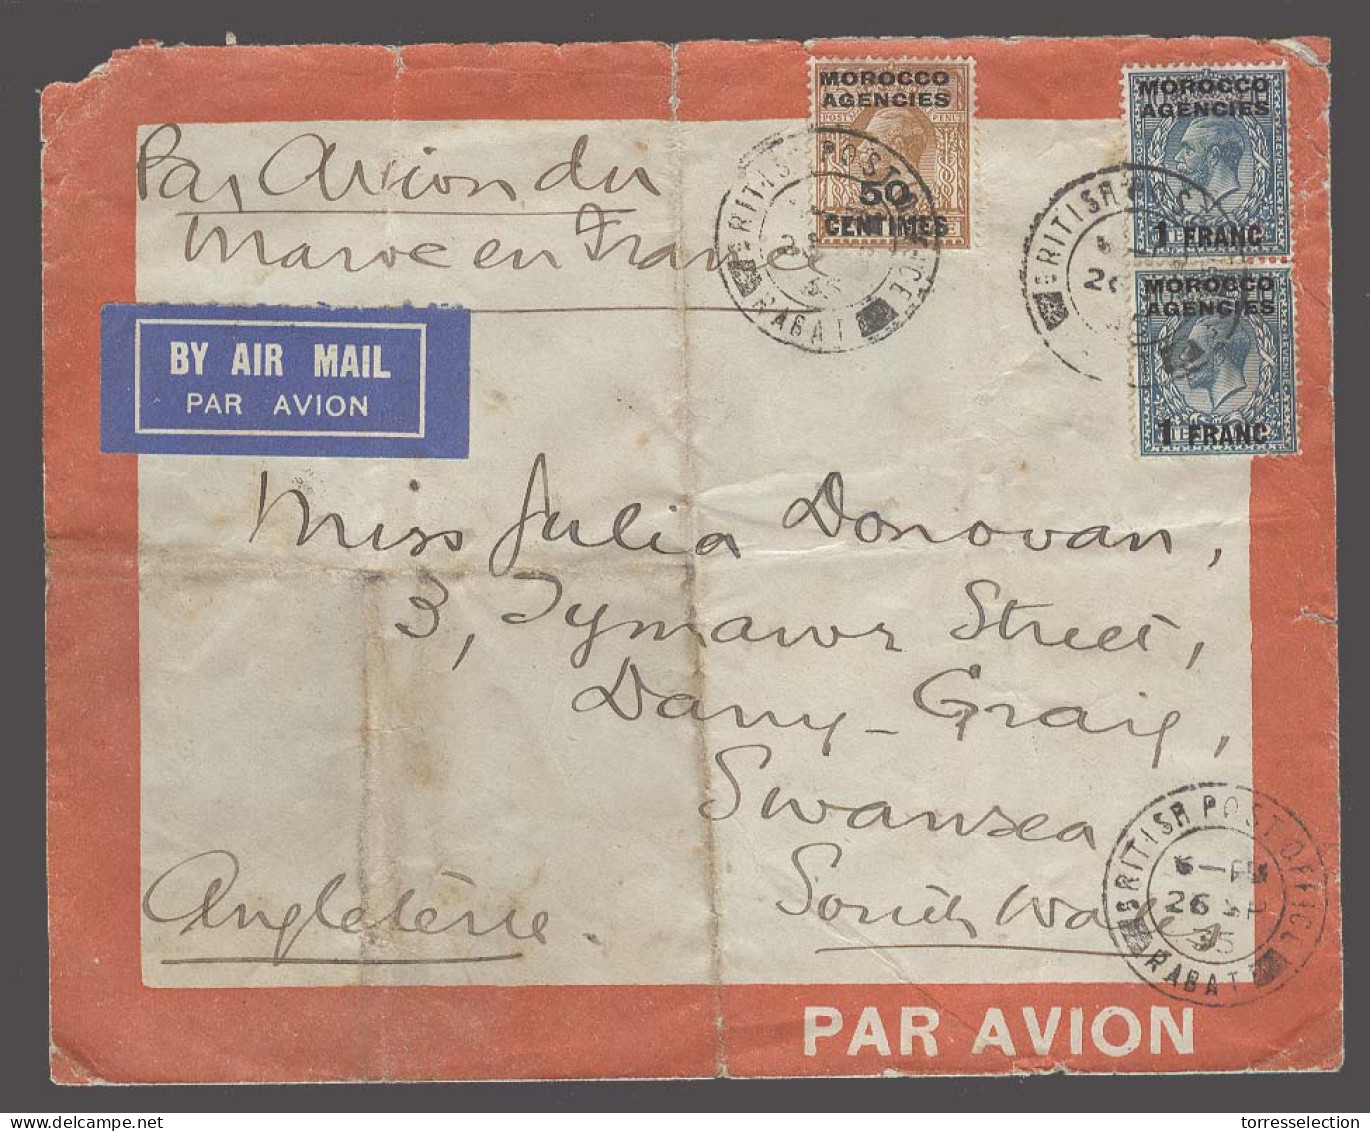 Par Avion du
Maroc en France
BY AIR MAIL
PAR AVION
MOROCCO
AGENCIES
50
CENTIMES
MOROCCO
AGENCIES
1 FRANC
MOROCCO
AGENCIES
1 FRANC
BRITISH POST OFFICE
RABAT
BRITISH
26
Miss Julia Donovan,
3, Tymawr Street,
Dany-Graig,
Swansea
South Wales
Angleterre.
BRITISH POST OFFICE
26 SP
35
RABAT
PAR AVION
torresselection